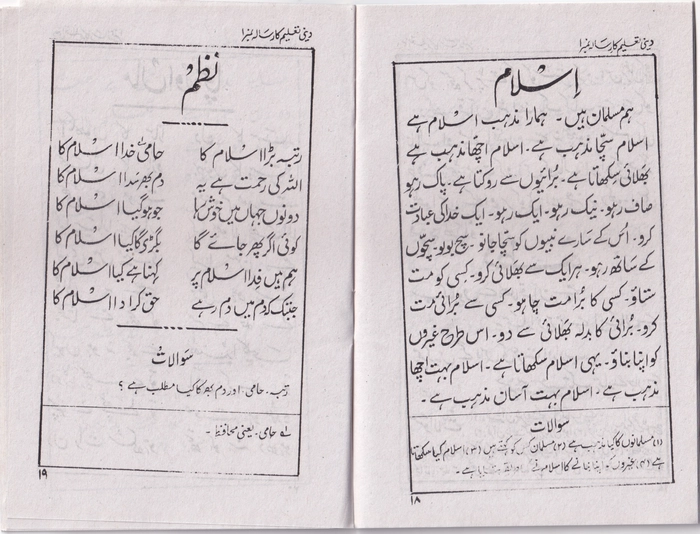 دینی تعلیم کا رسالہ نمبر ۱
اسلام
ہم مسلمان ہیں۔ ہمارا مذہب اسلام ہے
اسلام سچّا مذہب ہے۔ اسلام اچّھا مذہب ہے
بھلائی سکھاتا ہے۔ بُرائیوں سے روکتا ہے۔ پاک رہو
صاف رہو۔ نیک رہو۔ ایک رہو۔ ایک خدا کی عبادت
کرو۔ اُس کے سارے نبیوں کو سچّا جانو۔ سچ بولو سچّوں
کے ساتھ رہو۔ ہر ایک سے بھلائی کرو۔ کسی کو مت
ستاؤ۔ کسی کا بُرا مت چاہو۔ کسی سے بُرائی مت
کرو۔ بُرائی کا بدلہ بھلائی سے دو۔ اس طرح غیروں
کو اپنا بناؤ۔ یہی اسلام سکھاتا ہے۔ اسلام بہت اچھا
مذہب ہے۔ اسلام بہت آسان مذہب ہے۔
سوالات
(۱) مسلمانوں کا کیا مذہب ہے (۲) مسلمان کس کو کہتے ہیں (۳) اسلام کیا سکھاتا
ہے (۴) غیروں کو اپنا بنانے کا اسلام نے کیا طریقہ بتایا ہے۔
۱۸
دینی تعلیم کا رسالہ نمبر ۱
نظم
رتبہ بڑا اسلام کا حامی خدا اسلام کا
اللہ کی رحمت ہے یہ دم بھر سدا اسلام کا
دونوں جہاں میں خوش رہا جو ہو گیا اسلام کا
کوئی اگر پھر جائے گا بگڑے گا کیا اسلام کا
ہم ہیں فدا اسلام پر کہنا ہے کیا اسلام کا
جبتک کہ دم میں دم رہے حق کر ادا اسلام کا
سوالات
رتبہ۔ حامی۔ اور دم بھر کا کیا مطلب ہے؟
لہ حامی۔ یعنی محافظ۔
۱۹